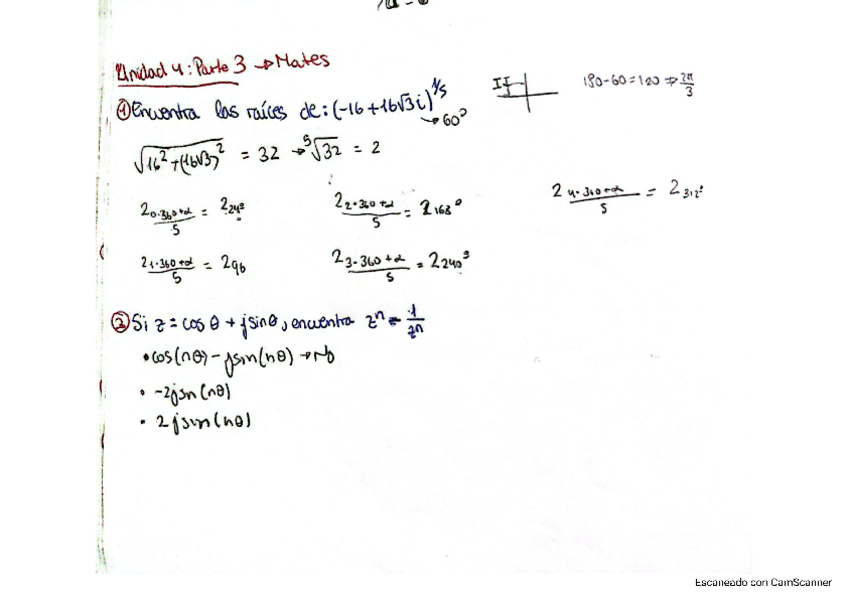 Unidad 4: Parte 3 → Mates
① Encuentra las raíces de: (-16+16√3i)^1/5
→ 60°
II
180-60=120 ⇒ 2π/3
√16²+(16√3)² = 32 → ⁵√32 = 2
2 0·360+α/5 = 2 24°
2 2·360+α/5 = 2 168°
2 4·360+α/5 = 2 312°
2 1·360+α/5 = 2 96
2 3·360+α/5 = 2 240°
② Si z = cos θ + jsinθ, encuentra zⁿ - 1/zⁿ
• cos(nθ) - jsin(nθ) → No
• -2jsn(nθ)
• 2jsin(nθ)
Escaneado con CamScanner